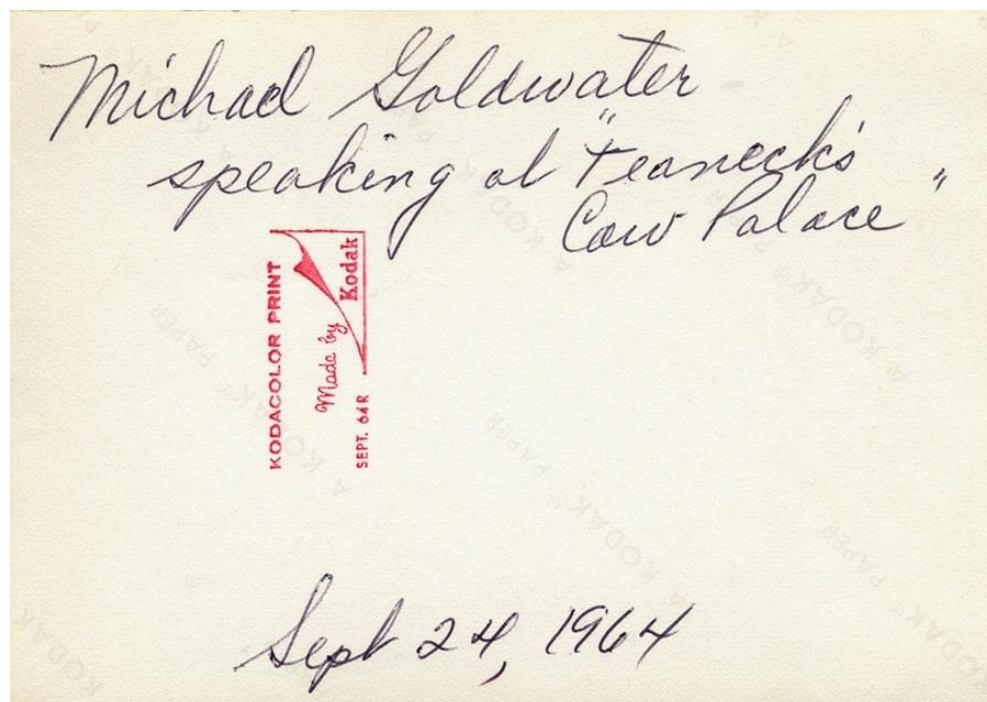 Michael Goldwater
speaking at "Teaneck's
Cow Palace"
KODACOLOR PRINT
Made by
Kodak
SEPT. 64R
Sept 24, 1964